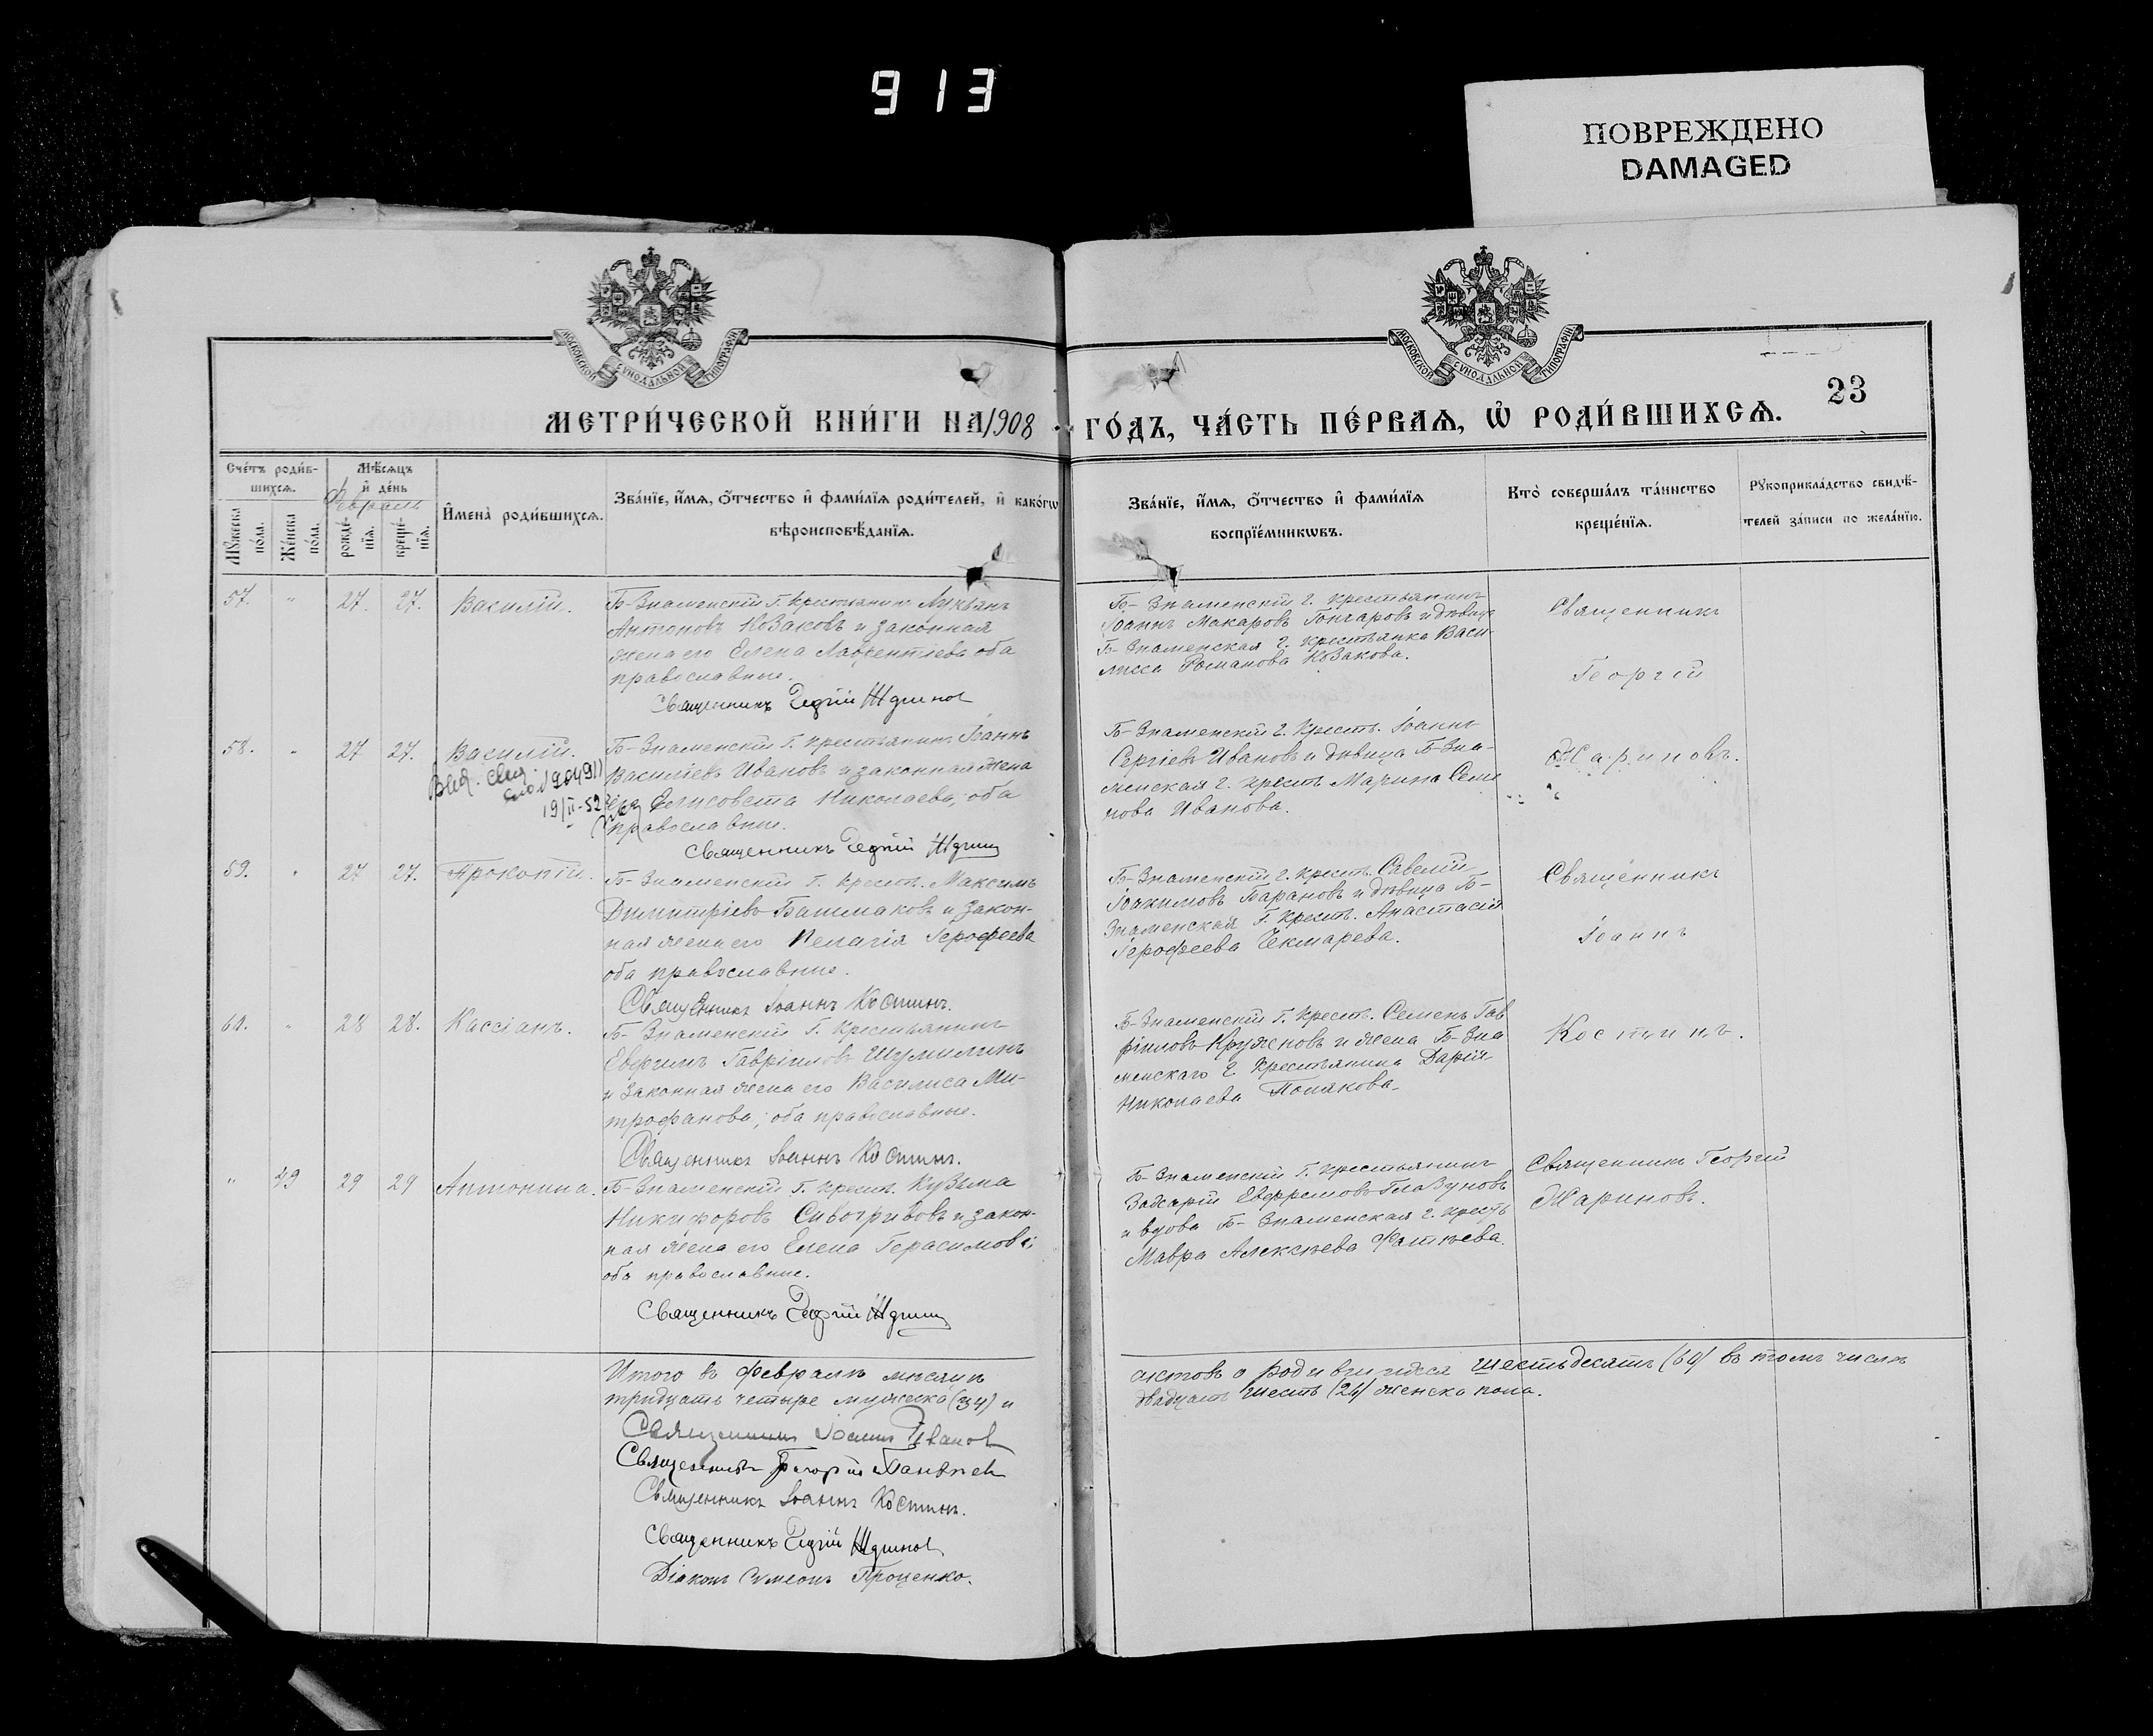 913
ПОВРЕЖДЕНО
DAMAGED
МОСКОВСКОЙ СѴНОДАЛЬНОЙ ТИПОГРАФІИ
МОСКОВСКОЙ СѴНОДАЛЬНОЙ ТИПОГРАФІИ
23
МЕТРИ́ЧЕСКОЙ КНИ́ГИ НА 1908 ГО́ДЪ, ЧА́СТЬ ПЕ́РВАѦ, Ѡ҆ РОДИ́ВШИХСѦ.
Сче́тъ роди́в-
шихсѧ.
Мѣ́сѧцъ
и҆ де́нь
Февраль
Мꙋ́жеска по́ла.
Же́нска по́ла.
рожде́-нїѧ.
креще́-нїѧ.
И҆мена̀ роди́вшихсѧ.
Зва́нїе, и҆́мѧ, ѻ҆́тчество и҆ фами́лїѧ роди́телей, и҆ како́гѡ
вѣроисповѣ́данїѧ.
Зва́нїе, и҆́мѧ, ѻ҆́тчество и҆ фами́лїѧ
воспрїе́мникѡвъ.
Кто̀ соверша́лъ та́инство
креще́нїѧ.
Рꙋкоприкла́дство свидѣ́-
телей за́писи по жела́нїю.
57. " 27. 27. Василій.
Б-Знаменскій г. крестьянинъ Лукьянъ
Антоновъ Козаковъ и законная
жена его Елена Лаврентіева оба
православные.
Священникъ Георгій Жариновъ
Б-Знаменскій г. крестьянинъ
Іоаннъ Макаровъ Гончаровъ и дѣвица
Б-Знаменская г. крестьянка Васи-
лисса Романова Козакова.
Священникъ
Георгій
58. " 27 27. Василій.
19/II-52
Б-Знаменскій г. крестьянинъ Іоаннъ
Василіевъ Ивановъ и законная жена
его Елисовета Николаева, оба
православные.
Священникъ Георгій Жариновъ
Б-Знаменскій г. Крест. Іоаннъ
Сергіевъ Ивановъ и дѣвица Б-Зна-
менская г. крест. Марина Семе
нова Иванова.
Жариновъ.
59. " 27 27. Прокопій.
Б-Знаменскій г. крест. Максимъ
Димитріевъ Башмаковъ и закон-
ная жена его Пелагія Іерофеева
оба православные.
Священникъ Іоаннъ Костинъ.
Б-Знаменскій г. крест. Савелій
Іоакимовъ Барановъ и дѣвица Б-
Знаменская г. крест. Анастасія
Іерофеева Чекмарева.
Священникъ
Іоаннъ
60. " 28 28. Кассіанъ.
Б-Знаменскій г. Крестьянинъ
Гавріиловъ Шумилинъ
и законная жена его Василиса Ми-
трофанова; оба православные.
Священникъ Іоаннъ Костинъ.
Б-Знаменскій г. крест. Семенъ Гав
ріиловъ Кружновъ и жена Б-Зна
менскаго г. крестьянина Дарія
Николаева Полякова.
Костинъ.
" 29 29 Антонина.
Б-Знаменскій г. крест. Кузьма
Никифоровъ Сивогривовъ и закон-
ная жена его Елена Герасимова;
оба православные.
Священникъ Георгій Жариновъ
Б-Знаменскій г. крестьянинъ
Захарій Евфремовъ Глазуновъ
и вдова Б-Знаменская г. крест
Мавра Алексѣева Фатѣева.
Священникъ Георгій
Жариновъ.
Итого въ Февралѣ мѣсяцѣ
тридцать четыре мужеска (34) и
актовъ о родившихся шестьдесятъ (60) въ томъ числѣ
двадцать шесть (26) женска пола.
Священникъ Іоаннъ Ивановъ
Священникъ
Священникъ Іоаннъ Костинъ.
Священникъ Георгій Жариновъ
Діаконъ Симеонъ Проценко.